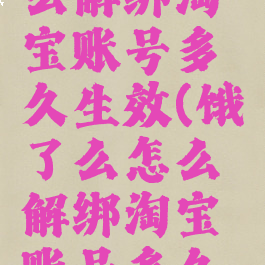 么解绑淘
宝账号多
久生效(饿
了么怎么
解绑淘宝
账号多久